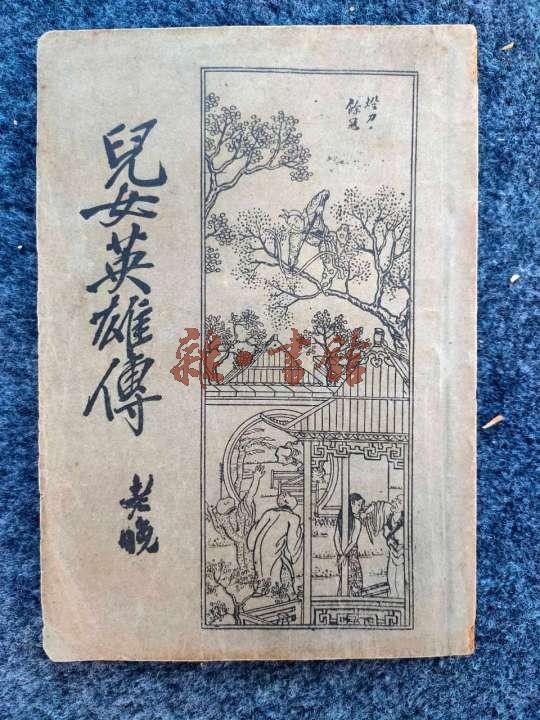 兒女英雄傳
老晚
雜·書館